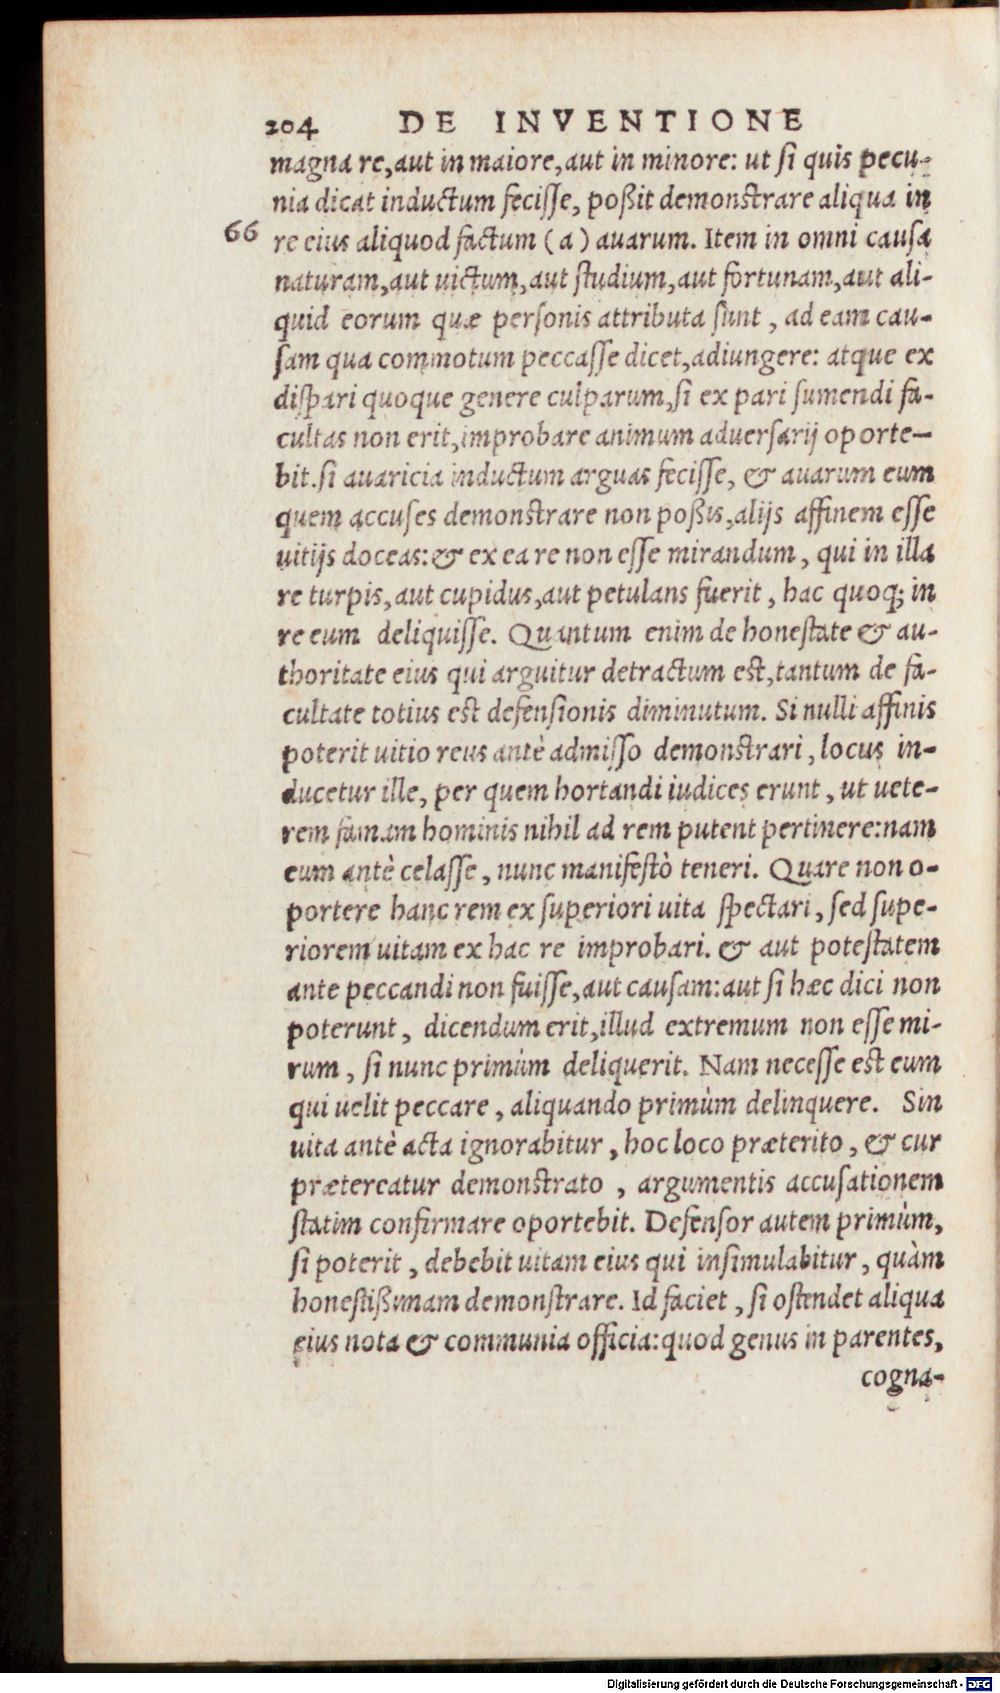 204 DE INVENTIONE
magna re, aut in maiore, aut in minore: ut ſi quis pecu-
nia dicat inductum feciſſe, poßit demonſtrare aliqua in
66 re eius aliquod factum (a) auarum. Item in omni cauſa
naturam, aut uictum, aut ſtudium, aut fortunam, aut ali-
quid eorum quæ perſonis attributa ſunt, ad eam cau-
ſam qua commotum peccaſſe dicet, adiungere: atque ex
diſpari quoque genere culparum, ſi ex pari ſumendi fa-
cultas non erit, improbare animum aduerſarij oporte-
bit. ſi auaricia inductum arguas feciſſe, & auarum eum
quem accuſes demonſtrare non poßis, alijs affinem eſſe
uitijs doceas: & ex ea re non eſſe mirandum, qui in illa
re turpis, aut cupidus, aut petulans fuerit, hac quoq; in
re eum deliquiſſe. Quantum enim de honeſtate & au-
thoritate eius qui arguitur detractum eſt, tantum de fa-
cultate totius eſt defenſionis diminutum. Si nulli affinis
poterit uitio reus antè admiſſo demonſtrari, locus in-
ducetur ille, per quem hortandi iudices erunt, ut uete-
rem famam hominis nihil ad rem putent pertinere: nam
eum antè celaſſe, nunc manifeſtò teneri. Quare non o-
portere hanc rem ex ſuperiori uita ſpectari, ſed ſupe-
riorem uitam ex hac re improbari. & aut poteſtatem
ante peccandi non fuiſſe, aut cauſam: aut ſi hæc dici non
poterunt, dicendum erit, illud extremum non eſſe mi-
rum, ſi nunc primùm deliquerit. Nam neceſſe eſt eum
qui uelit peccare, aliquando primùm delinquere. Sin
uita antè acta ignorabitur, hoc loco præterito, & cur
prætereatur demonſtrato, argumentis accuſationem
ſtatim confirmare oportebit. Defenſor autem primùm,
ſi poterit, debebit uitam eius qui inſimulabitur, quàm
honeſtißimam demonſtrare. Id faciet, ſi oſtendet aliqua
eius nota & communia officia: quod genus in parentes,
cogna-
Digitalisierung gefördert durch die Deutsche Forschungsgemeinschaft - DFG